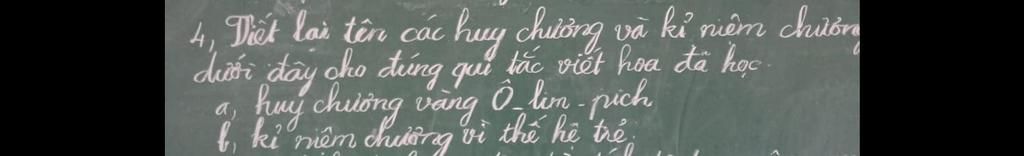 4, Viết lại tên các huy chương và kỉ niệm chương
dưới đây cho đúng qui tắc viết hoa đã học.
a, huy chương vàng Ô-lim-pich
b, kỉ niệm chương vì thế hệ trẻ.